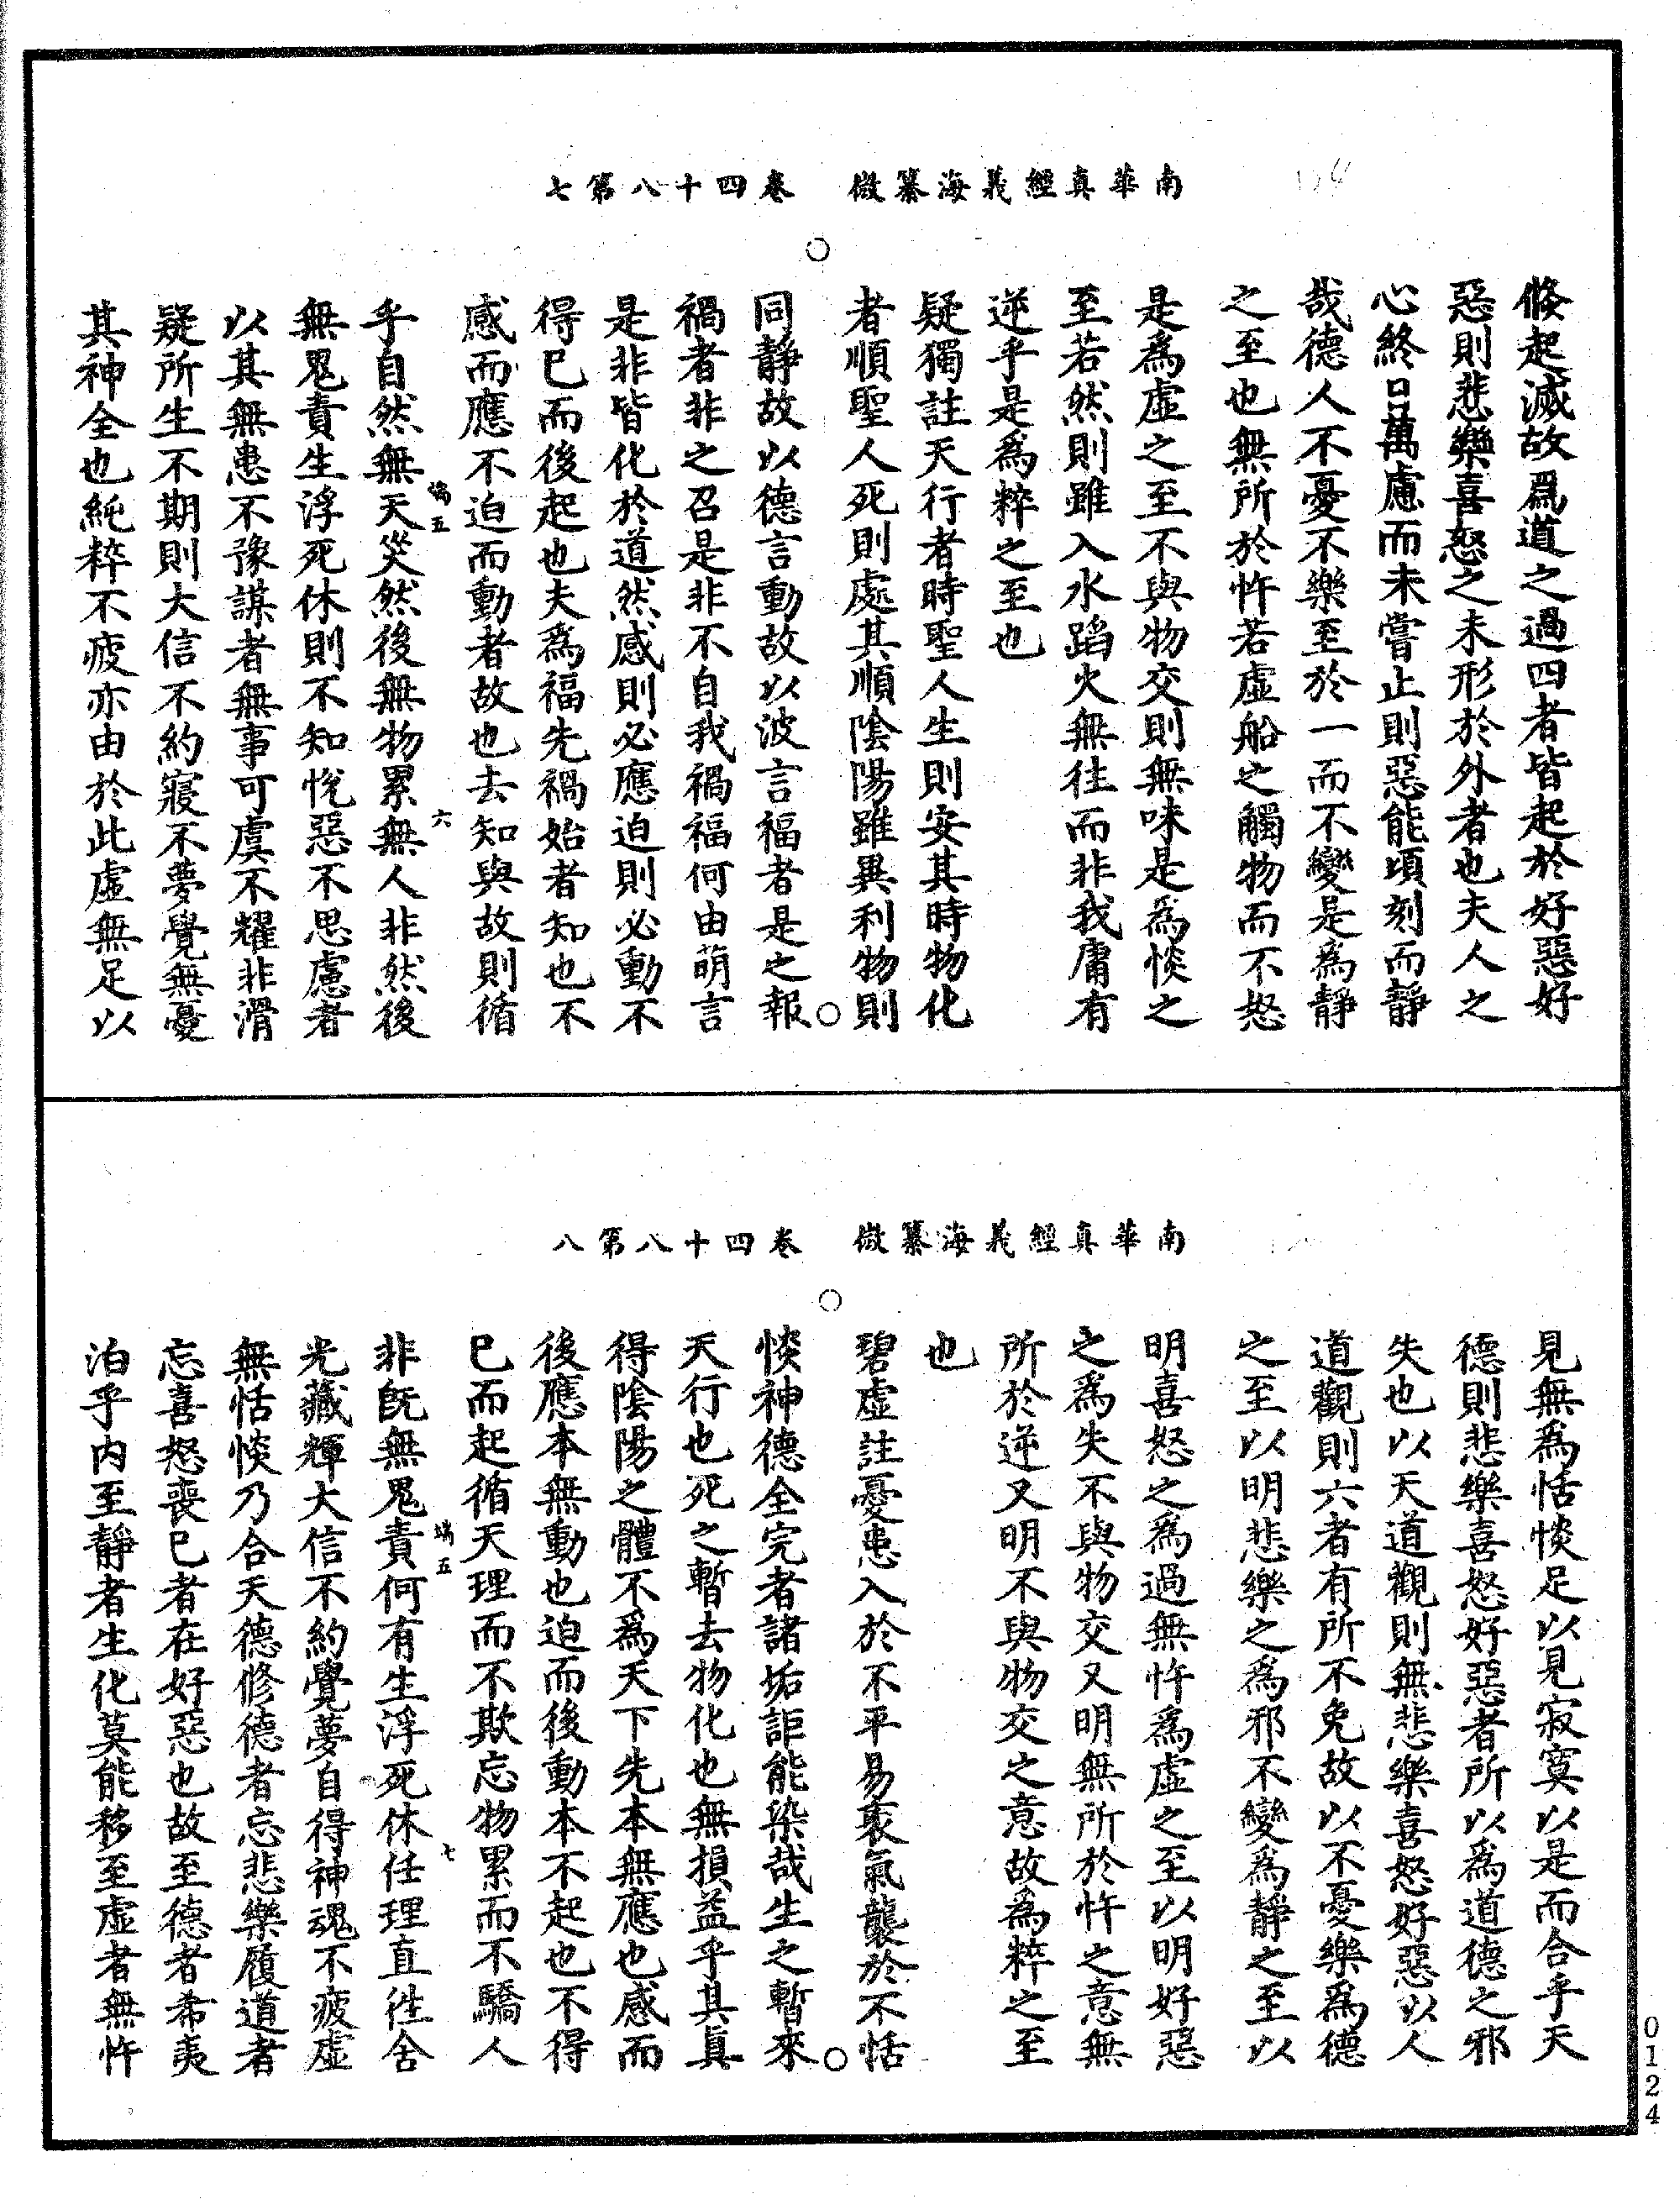 南華真經義海纂微　卷四十八第七
倏起滅故爲道之過四者皆起於好惡好
惡則悲樂喜怒之未形於外者也夫人之
心終日萬慮而未嘗止則惡能頃刻而靜
哉德人不憂不樂至於一而不變是爲靜
之至也無所於忤若虛船之觸物而不怒
是爲虛之至不與物交則無味是爲惔之
至若然則雖入水蹈火無往而非我庸有
逆乎是爲粹之至也
疑獨註天行者時聖人生則安其時物化
者順聖人死則處其順陰陽雖異利物則
同靜故以德言動故以波言福者是之報
禍者非之召是非不自我禍福何由萌言
是非皆化於道然感則必應迫則必動不
得已而後起也夫爲福先禍始者知也不
感而應不迫而動者故也去知與故則循
乎自然無天災然後無物累無人非然後
端五　六
無鬼責生浮死休則不知悅惡不思慮者
以其無患不豫謀者無事可虞不耀非滑
疑所生不期則大信不約寢不夢覺無憂
其神全也純粹不疲亦由於此虛無足以
南華真經義海纂微　卷四十八第八
見無爲恬惔足以見寂寞以是而合乎天
德則悲樂喜怒好惡者所以爲道德之邪
失也以天道觀則無悲樂喜怒好惡以人
道觀則六者有所不免故以不憂樂爲德
之至以明悲樂之爲邪不變爲靜之至以
明喜怒之爲過無忤爲虛之至以明好惡
之爲失不與物交又明無所於忤之意無
所於逆又明不與物交之意故爲粹之至
也
碧虛註憂患入於不平易衺氣襲於不恬
惔神德全完者諸垢詎能染哉生之暫來
天行也死之暫去物化也無損益乎其真
得陰陽之體不爲天下先本無應也感而
後應本無動也迫而後動本不起也不得
已而起循天理而不欺忘物累而不驕人
非旣無鬼責何有生浮死休任理直徃舍
端五　七
光藏輝大信不約覺夢自得神魂不疲虛
無恬惔乃合天德修德者忘悲樂履道者
忘喜怒喪已者在好惡也故至德者希夷
泊乎内至靜者生化莫能移至虛者無忤
0124